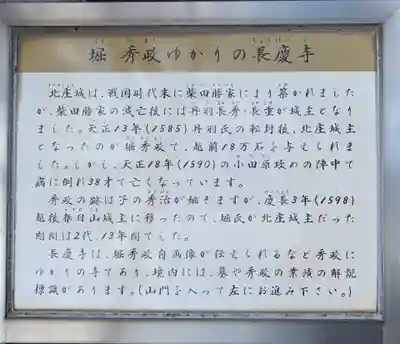 堀 秀政ゆかりの長慶寺
北庄城は、戦国時代末に柴田勝家により築かれました
が、柴田勝家の滅亡後には丹羽長秀・長重が城主となり
ました。天正13年(1585)丹羽氏の転封後、北庄城主
となったのが堀秀政で、越前18万石を与えられま
した。しかし、天正18年(1590)の小田原攻めの陣中で
病に倒れ38才で亡くなっています。
秀政の跡は子の秀治が継ぎますが、慶長3年(1598)
越後春日山城主に移ったので、堀氏が北庄城主だった
期間は2代、13年間でした。
長慶寺は、堀秀政自画像が伝えられるなど秀政に
ゆかりの寺であり、境内には、墓や秀政の業績の解説
標識があります。(山門を入って左にお進み下さい。)